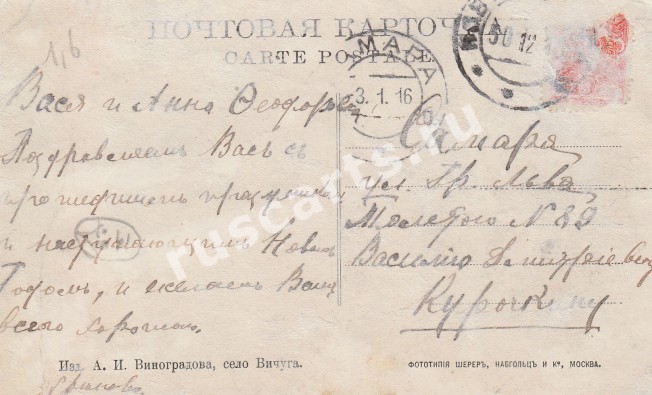 ПОЧТОВАЯ КАРТОЧКА
CARTE POSTALE
1,6
САМАРА
3.1.16
30 12
Вася и Анна Ѳеодор
Поздравляем Васъ с
прошедшимъ праздник
и наступающимъ Новым
Годомъ, и желаем Вам
всего хорошаго.
Самара
ул. Гр. Льва
Толстого N 89
Василию Дмитриевичу
Курочкину
Изд. А. И. Виноградова, село Вичуга.
ФОТОТИПІЯ ШЕРЕРЪ, НАБГОЛЬЦЪ И Кº, МОСКВА.
ruscarts.ru